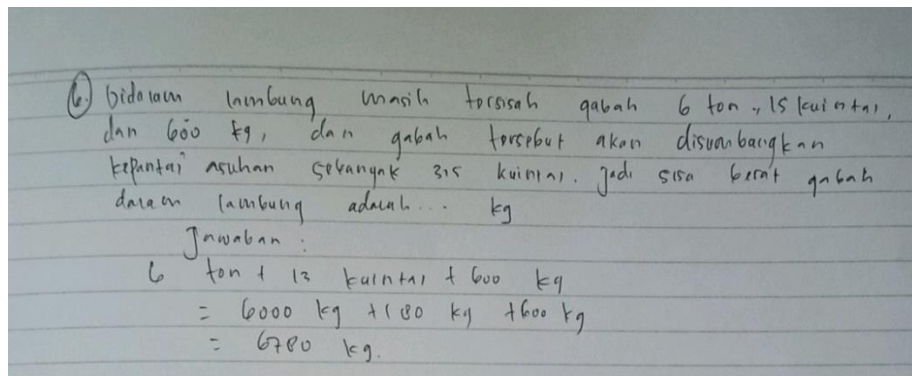 6. Didalam lumbung masih torsisah gabah 6 ton, 15 kuintal,
dan 600 kg, dan gabah torsebut akan disumbangkan
kepantai asuhan sebanyak 315 kuintal. Jadi sisa berat gabah
dalam lumbung adalah... kg
Jawaban :
6 ton + 13 kuintal + 600 kg
= 6000 kg + 180 kg + 600 kg
= 6780 kg.